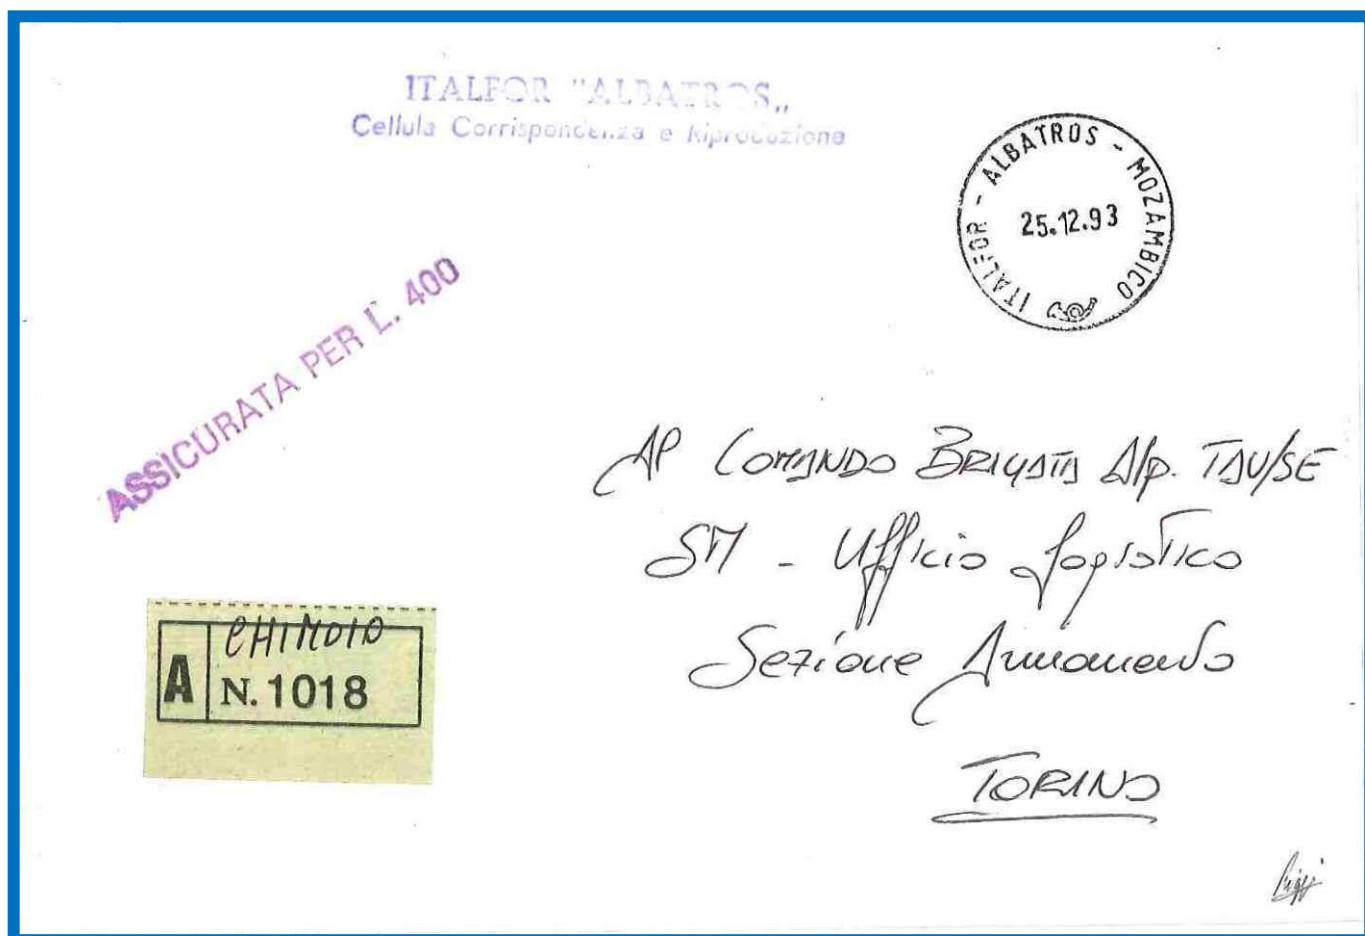 ITALFOR "ALBATROS„
Cellula Corrispondenza e Riproduzione
ITALFOR - ALBATROS - MOZAMBICO
25.12.93
ASSICURATA PER L. 400
Al Comando BRIGATA Alp. TAU/SE
SM - Ufficio Logistico
Sezione Armamento
TORINO
CHIMOIO
A N. 1018